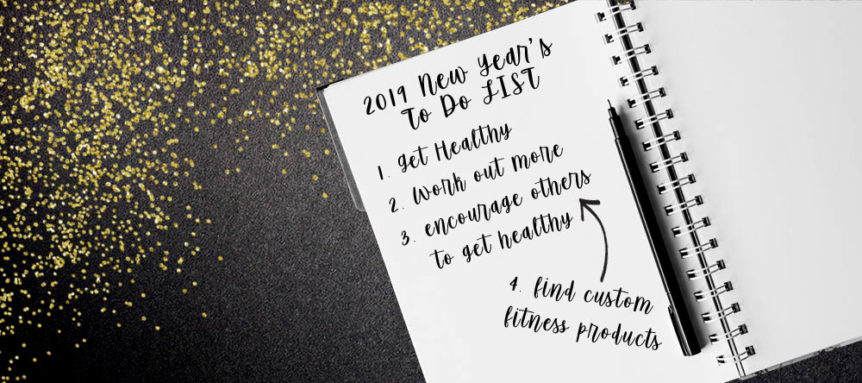 2019 New Year's
To Do LIST
1. Get Healthy
2. Work out more
3. encourage others
to get healthy
4. find custom
fitness products